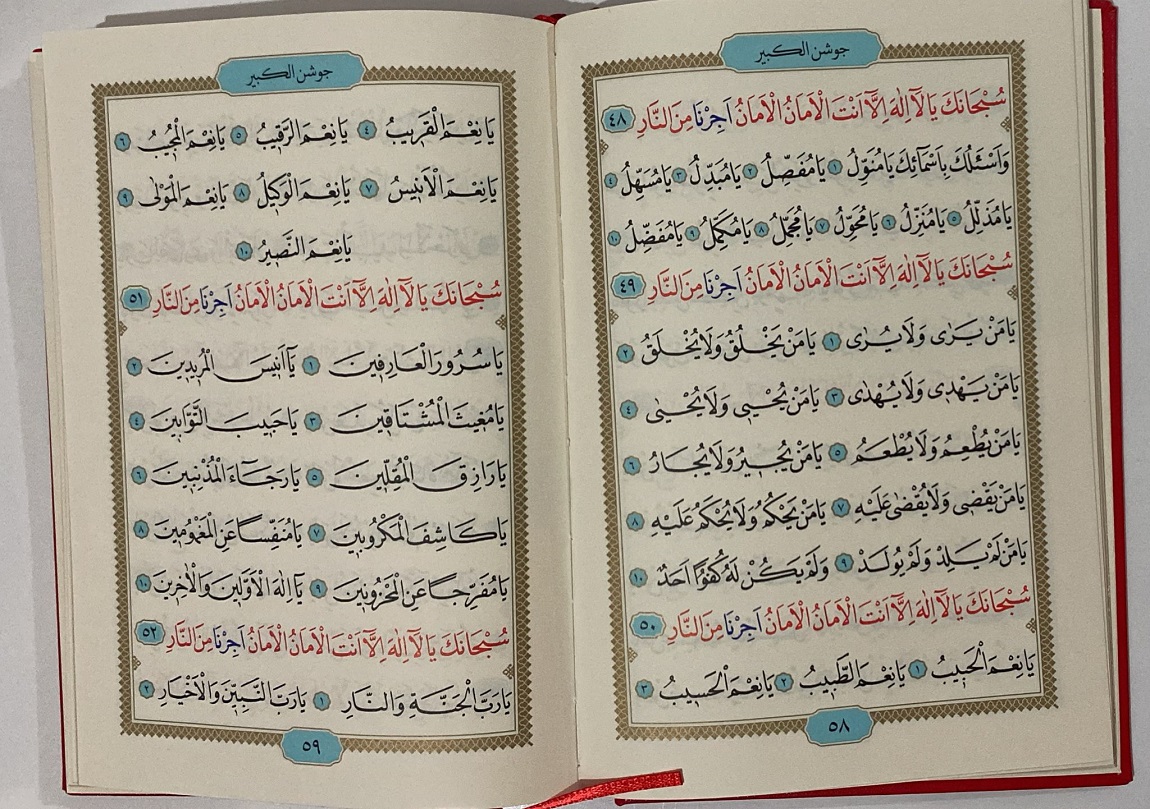 جوشن الكبير
سُبْحَانَكَ يَا لَٓا اِلٰهَ اِلَّٓا اَنْتَ الْاَمَانُ الْاَمَانُ اَجِرْنَا مِنَ النَّارِ ٤٨
وَاَسْئَلُكَ بِاَسْمَٓائِكَ يَا مُنَوِّلُ ١ يَا مُفَصِّلُ ٢ يَا مُبَدِّلُ ٣ يَا مُسَهِّلُ ٤
يَا مُذَلِّلُ ٥ يَا مُنَزِّلُ ٦ يَا مُحَوِّلُ ٧ يَا مُجَمِّلُ ٨ يَا مُكَمِّلُ ٩ يَا مُفَضِّلُ ١٠
سُبْحَانَكَ يَا لَٓا اِلٰهَ اِلَّٓا اَنْتَ الْاَمَانُ الْاَمَانُ اَجِرْنَا مِنَ النَّارِ ٤٩
يَا مَنْ يَرٰى وَلَا يُرٰى ١ يَا مَنْ يَخْلُقُ وَلَا يُخْلَقُ ٢
يَا مَنْ يَهْدِى وَلَا يُهْدٰى ٣ يَا مَنْ يُحْيِى وَلَا يُحْيٰى ٤
يَا مَنْ يُطْعِمُ وَلَا يُطْعَمُ ٥ يَا مَنْ يُجِيرُ وَلَا يُجَارُ ٦
يَا مَنْ يَقْضِى وَلَا يُقْضٰى عَلَيْهِ ٧ يَا مَنْ يَحْكُمُ وَلَا يُحْكَمُ عَلَيْهِ ٨
يَا مَنْ لَمْ يَلِدْ وَلَمْ يُولَدْ ٩ وَلَمْ يَكُنْ لَهُ كُفُوًا اَحَدٌ ١٠
سُبْحَانَكَ يَا لَٓا اِلٰهَ اِلَّٓا اَنْتَ الْاَمَانُ الْاَمَانُ اَجِرْنَا مِنَ النَّارِ ٥٠
يَا نِعْمَ الْحَبِيبُ ١ يَا نِعْمَ الطَّبِيبُ ٢ يَا نِعْمَ الْحَسِيبُ ٣
٥٨
جوشن الكبير
يَا نِعْمَ الْقَرِيبُ ٤ يَا نِعْمَ الرَّقِيبُ ٥ يَا نِعْمَ الْمُجِيبُ ٦
يَا نِعْمَ الْاَنِيسُ ٧ يَا نِعْمَ الْوَكِيلُ ٨ يَا نِعْمَ الْمَوْلٰى ٩
يَا نِعْمَ النَّصِيرُ ١٠
سُبْحَانَكَ يَا لَٓا اِلٰهَ اِلَّٓا اَنْتَ الْاَمَانُ الْاَمَانُ اَجِرْنَا مِنَ النَّارِ ٥١
يَا سُرُورَ الْعَارِفِينَ ١ يَٓا اَنِيسَ الْمُرِيدِينَ ٢
يَا مُغِيثَ الْمُشْتَاقِينَ ٣ يَا حَبِيبَ التَّوَّابِينَ ٤
يَا رَازِقَ الْمُقِلِّينَ ٥ يَا رَجَٓاءَ الْمُذْنِبِينَ ٦
يَا كَاشِفَ الْمَكْرُوبِينَ ٧ يَا مُنَفِّسًا عَنِ الْمَغْمُومِينَ ٨
يَا مُفَرِّجًا عَنِ الْمَحْزُونِينَ ٩ يَٓا اِلٰهَ الْاَوَّلِينَ وَالْاٰخِرِينَ ١٠
سُبْحَانَكَ يَا لَٓا اِلٰهَ اِلَّٓا اَنْتَ الْاَمَانُ الْاَمَانُ اَجِرْنَا مِنَ النَّارِ ٥٢
يَا رَبَّ الْجَنَّةِ وَالنَّارِ ١ يَا رَبَّ النَّبِيِّينَ وَالْاَخْيَارِ ٢
٥٩